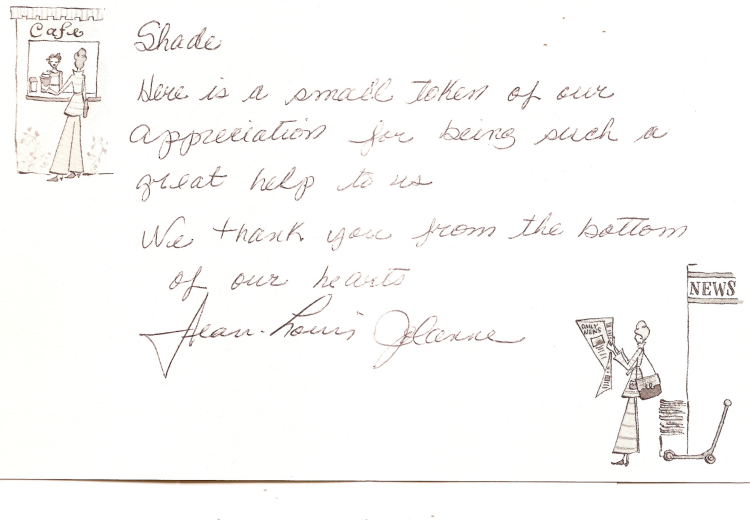 Cafe
Shade
Here is a small token of our
appreciation for being such a
great help to us
We thank you from the bottom
of our hearts
Jean-Louis
NEWS
DAILY
NEWS